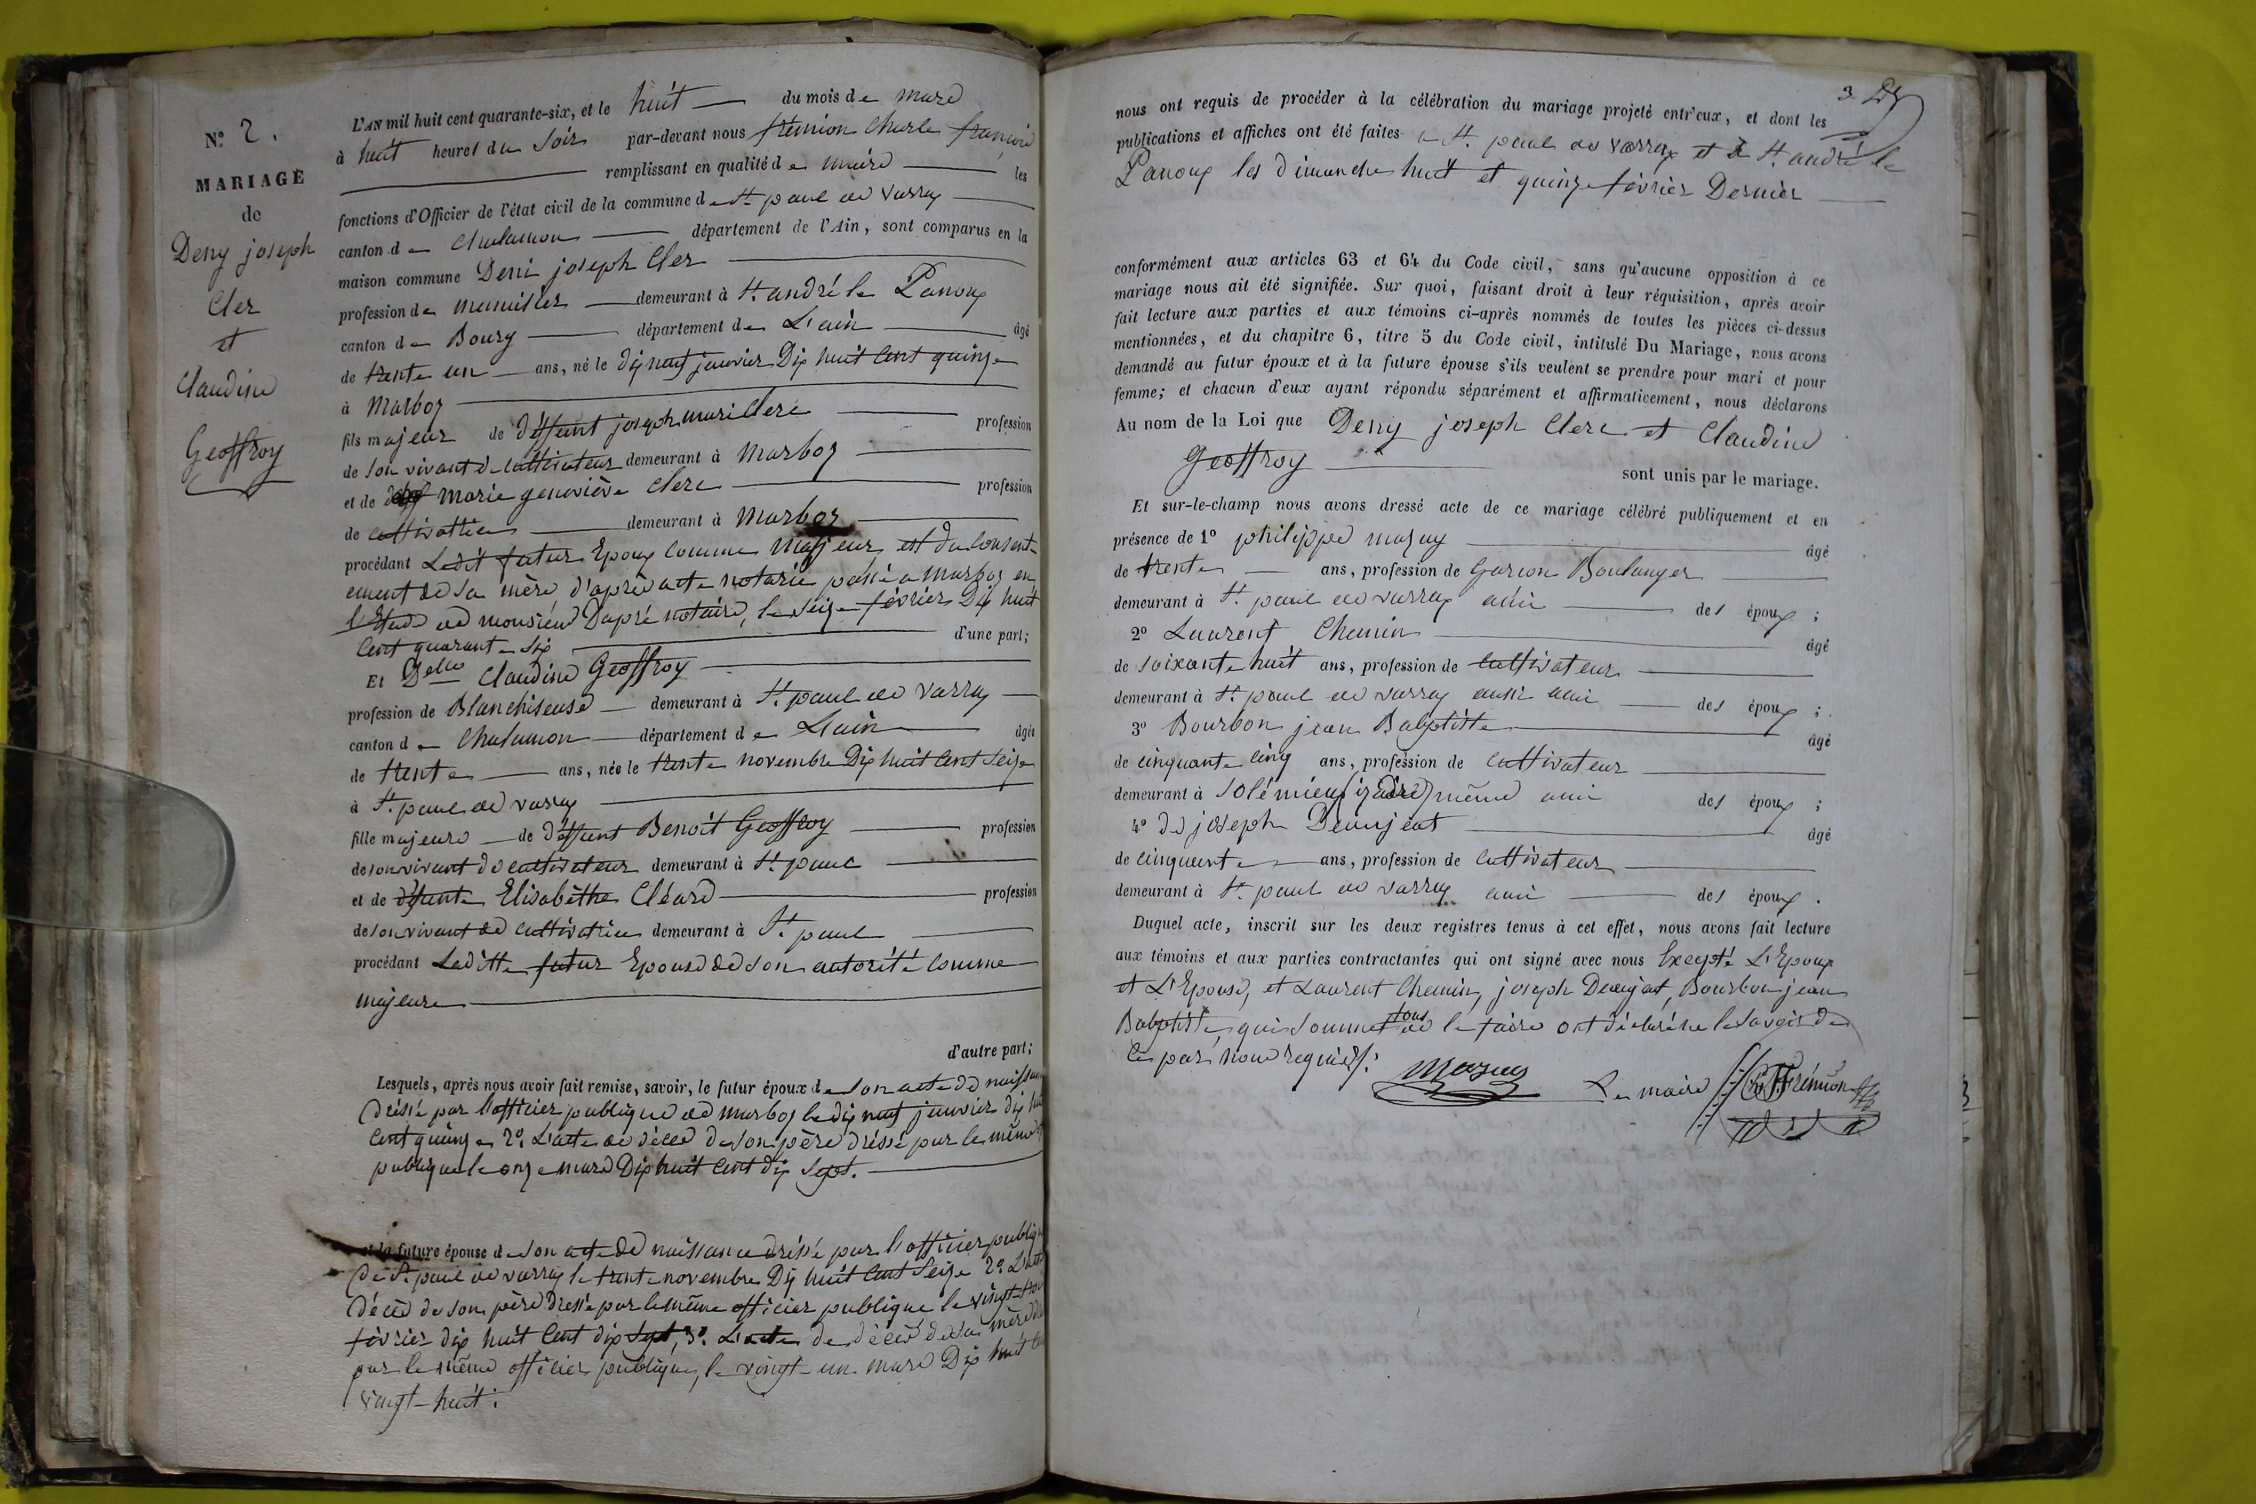 N.º 2.
MARIAGE
de
Deny joseph
Cler
et
Claudine
Geoffroy
L'AN mil huit cent quarante-six, et le huit du mois de mars
à huit heures du soir par-devant nous frémion Charle françois
remplissant en qualité de maire les
fonctions d'Officier de l'état civil de la commune de St paul de varax
canton de Chalamon département de l'Ain, sont comparus en la
maison commune Deni joseph Cler
profession de menusier demeurant à St andré le Panoux
canton de Bourg département de L'ain âgé
de trente un ans, né le dix neuf janvier Dix huit Cent quinze
à Marboz
fils majeur de déffunt joseph marie Clerc profession
de son vivant de cultivateur demeurant à Marboz
et de marie geneviève Clerc profession
de cultivatrice demeurant à Marboz
procédant Ledit futur Epoux Comme Majeur et du Consent-
ement de sa mère d'après acte notarié passé a Marboz en
l'Etude de monsieur Dupré notaire, le seize février Dix huit
Cent quarante six d'une part;
Et Delle Claudine Geoffroy
profession de Blanchiseuse demeurant à St. paul de varax
canton de Chalamon département de L'ain âgée
de trente ans, née le trente novembre Dix huit Cent Seize
à St. paul de varax
fille majeure de déffunt Benoit Geoffroy profession
de son vivant de cultivateur demeurant à St. paul
et de défunte Elisabèthe Cléard profession
de son vivant de cultivatrice demeurant à St. paul
procédant Laditte futur Epouse de son autorité Comme
majeure
d'autre part;
Lesquels, après nous avoir fait remise, savoir, le futur époux de son acte de naissan
dréssé par l'officier publique de marboz le dix neuf janvier dix hui
Cent quinze 2º. L'acte de décès de son père dréssé par le même
publique le onze mars Dix huit Cent dix Sept.
et la future épouse de son acte de naissance dréssé par l'officier publiq
de St. paul de varax le trente novembre Dix huit Cent Seize 2º. L'acte
décès de son père dressé par le même officier publique le vingt
février dix huit Cent dix Sept, 3º. L'acte de décès de sa mère
par le même officier publique, le vingt-un mars Dix huit Ce
vingt-huit.
3
nous ont requis de procéder à la célébration du mariage projeté entr'eux, et dont les
publications et affiches ont été faites a St. paul de varax et à St. andré le
Panoux les dimanche huit et quinze février Dernier
conformément aux articles 63 et 64 du Code civil, sans qu'aucune opposition à ce
mariage nous ait été signifiée. Sur quoi, faisant droit à leur réquisition, après avoir
fait lecture aux parties et aux témoins ci-après nommés de toutes les pièces ci-dessus
mentionnées, et du chapitre 6, titre 5 du Code civil, intitulé Du Mariage, nous avons
demandé au futur époux et à la future épouse s'ils veulent se prendre pour mari et pour
femme; et chacun d'eux ayant répondu séparément et affirmativement, nous déclarons
Au nom de la Loi que Deny joseph Clerc et Claudine
Geoffroy sont unis par le mariage.
Et sur-le-champ nous avons dressé acte de ce mariage célébré publiquement et en
présence de 1º philippe mazuy âgé
de trente ans, profession de Garson Boulanger
demeurant à St. paul de varax ami des époux;
2º Laurent Chemin âgé
de soixante huit ans, profession de Cultivateur
demeurant à St. paul de varax aussi ami des époux;
3º Bourbon jean Babptiste âgé
de cinquante cinq ans, profession de Cultivateur
demeurant à Solémieux (izère) même ami des époux;
4º de joseph Deaujeat âgé
de cinquante ans, profession de Cultivateur
demeurant à St. paul de varax ami des époux.
Duquel acte, inscrit sur les deux registres tenus à cet effet, nous avons fait lecture
aux témoins et aux parties contractantes qui ont signé avec nous Excepté L'Epoux
et L'Epouse, et Laurent Chemin, joseph Deaujeat, Bourbon jean
Babptiste, qui sommes tous de le faire ont déclaré ne le savoir de
ce par nous requis.
Mazuy Le maire Frémion